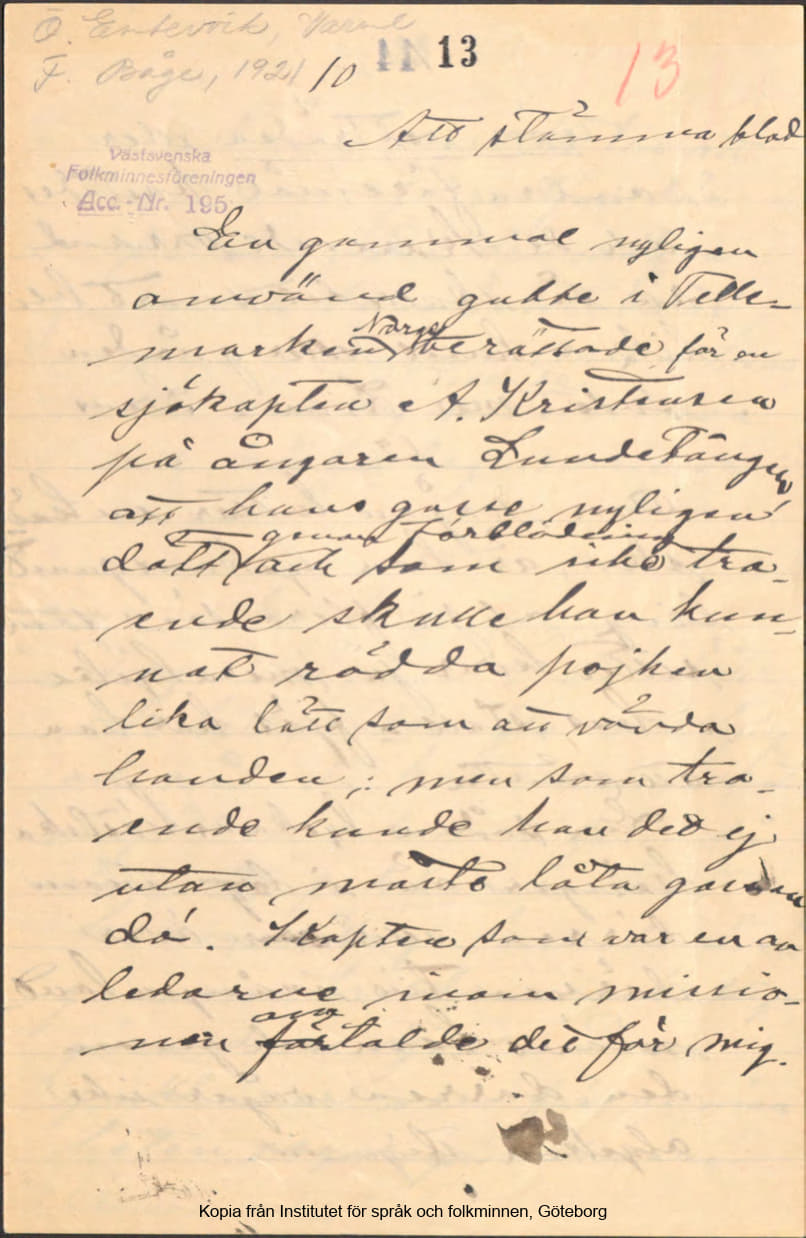 Ö. Emtervik, Värml
F. Båge, 1921 /10
11 13
13
Att stämma blod
Västsvenska
Folkminnesföreningen
Acc.-Nr. 195
En gammal nyligen
omvänd gubbe i Telle-
marken Norge berättade för en
sjökapten A. Kristensen
på ångaren Lundetången
att hans gosse nyligen
dött genom förblödning och som icke tro-
ende skulle han kun-
nat rädda pojken
lika lätt som att vända
handen; men som tro-
ende kunde han det ej
utan måste låta gossen
dö. Kapten som var en av
ledarne inom missio-
nen omtalde det för mig.
Kopia från Institutet för språk och folkminnen, Göteborg